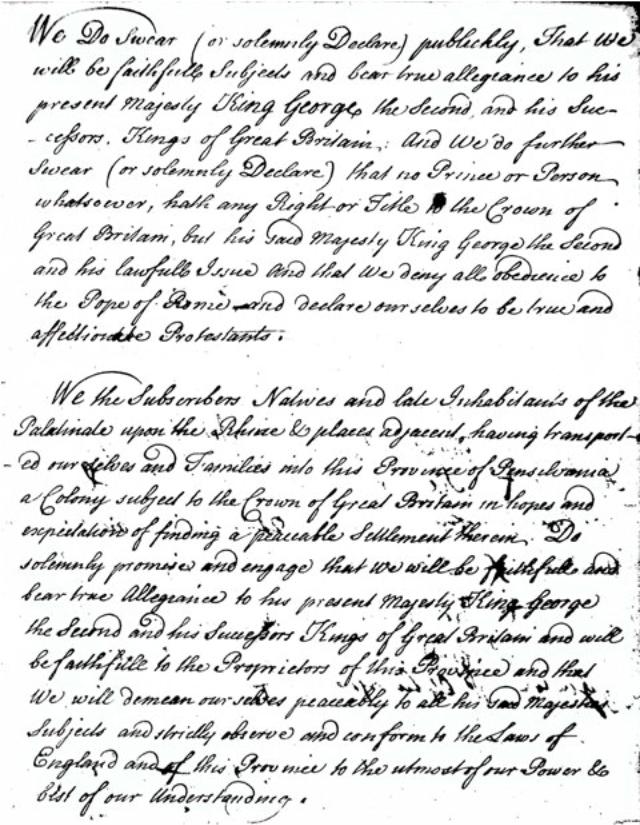 We Do Swear (or solemnly Declare) publickly, That We
will be faithfull Subjects and bear true allegiance to his
present Majesty King George the Second, and his Suc-
-cessors, Kings of Great Britain; And We do further
Swear (or solemnly Declare) that no Prince or Person
whatsoever, hath any Right or Title to the Crown of
Great Britain, but his said Majesty King George the Second
and his lawfull Issue And that We deny all obedience to
the Pope of Rome and declare ourselves to be true and
affectionate Protestants.
We the Subscribers Natives and late Inhabitants of the
Palatinate upon the Rhine & places adjacent, having transport-
-ed ourselves and Families into this Province of Pensilvania
a Colony subject to the Crown of Great Britain in hopes and
expectation of finding a peaceable Settlement therein Do
solemnly promise and engage that We will be faithfull and
bear true Allegiance to his present Majesty King George
the Second and his Successors Kings of Great Britain and will
be faithfull to the Proprietors of this Province and that
We will demean ourselves peaceably to all his said Majesties
Subjects and strictly observe and conform to the Laws of
England and of this Province to the utmost of our Power &
best of our Understanding.